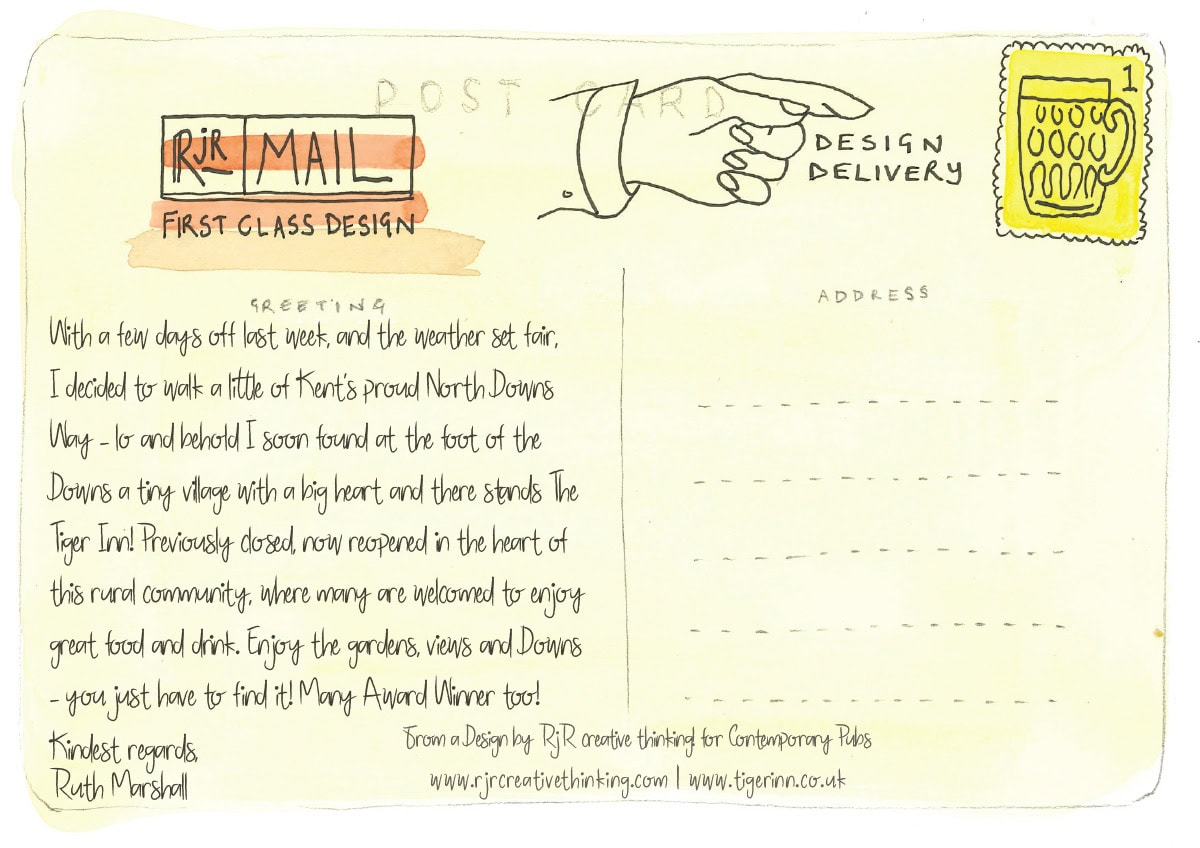 POST CARD
RJR MAIL
FIRST CLASS DESIGN
DESIGN
DELIVERY
1
GREETING
With a few days off last week, and the weather set fair,
I decided to walk a little of Kent's proud North Downs
Way - lo and behold I soon found at the foot of the
Downs a tiny village with a big heart and there stands The
Tiger Inn! Previously closed, now reopened in the heart of
this rural community, where many are welcomed to enjoy
great food and drink. Enjoy the gardens, views and Downs
- you just have to find it! Many Award Winner too!
Kindest regards,
Ruth Marshall
ADDRESS
From a Design by RjR creative thinking! for Contemporary Pubs
www.rjrcreativethinking.com | www.tigerinn.co.uk